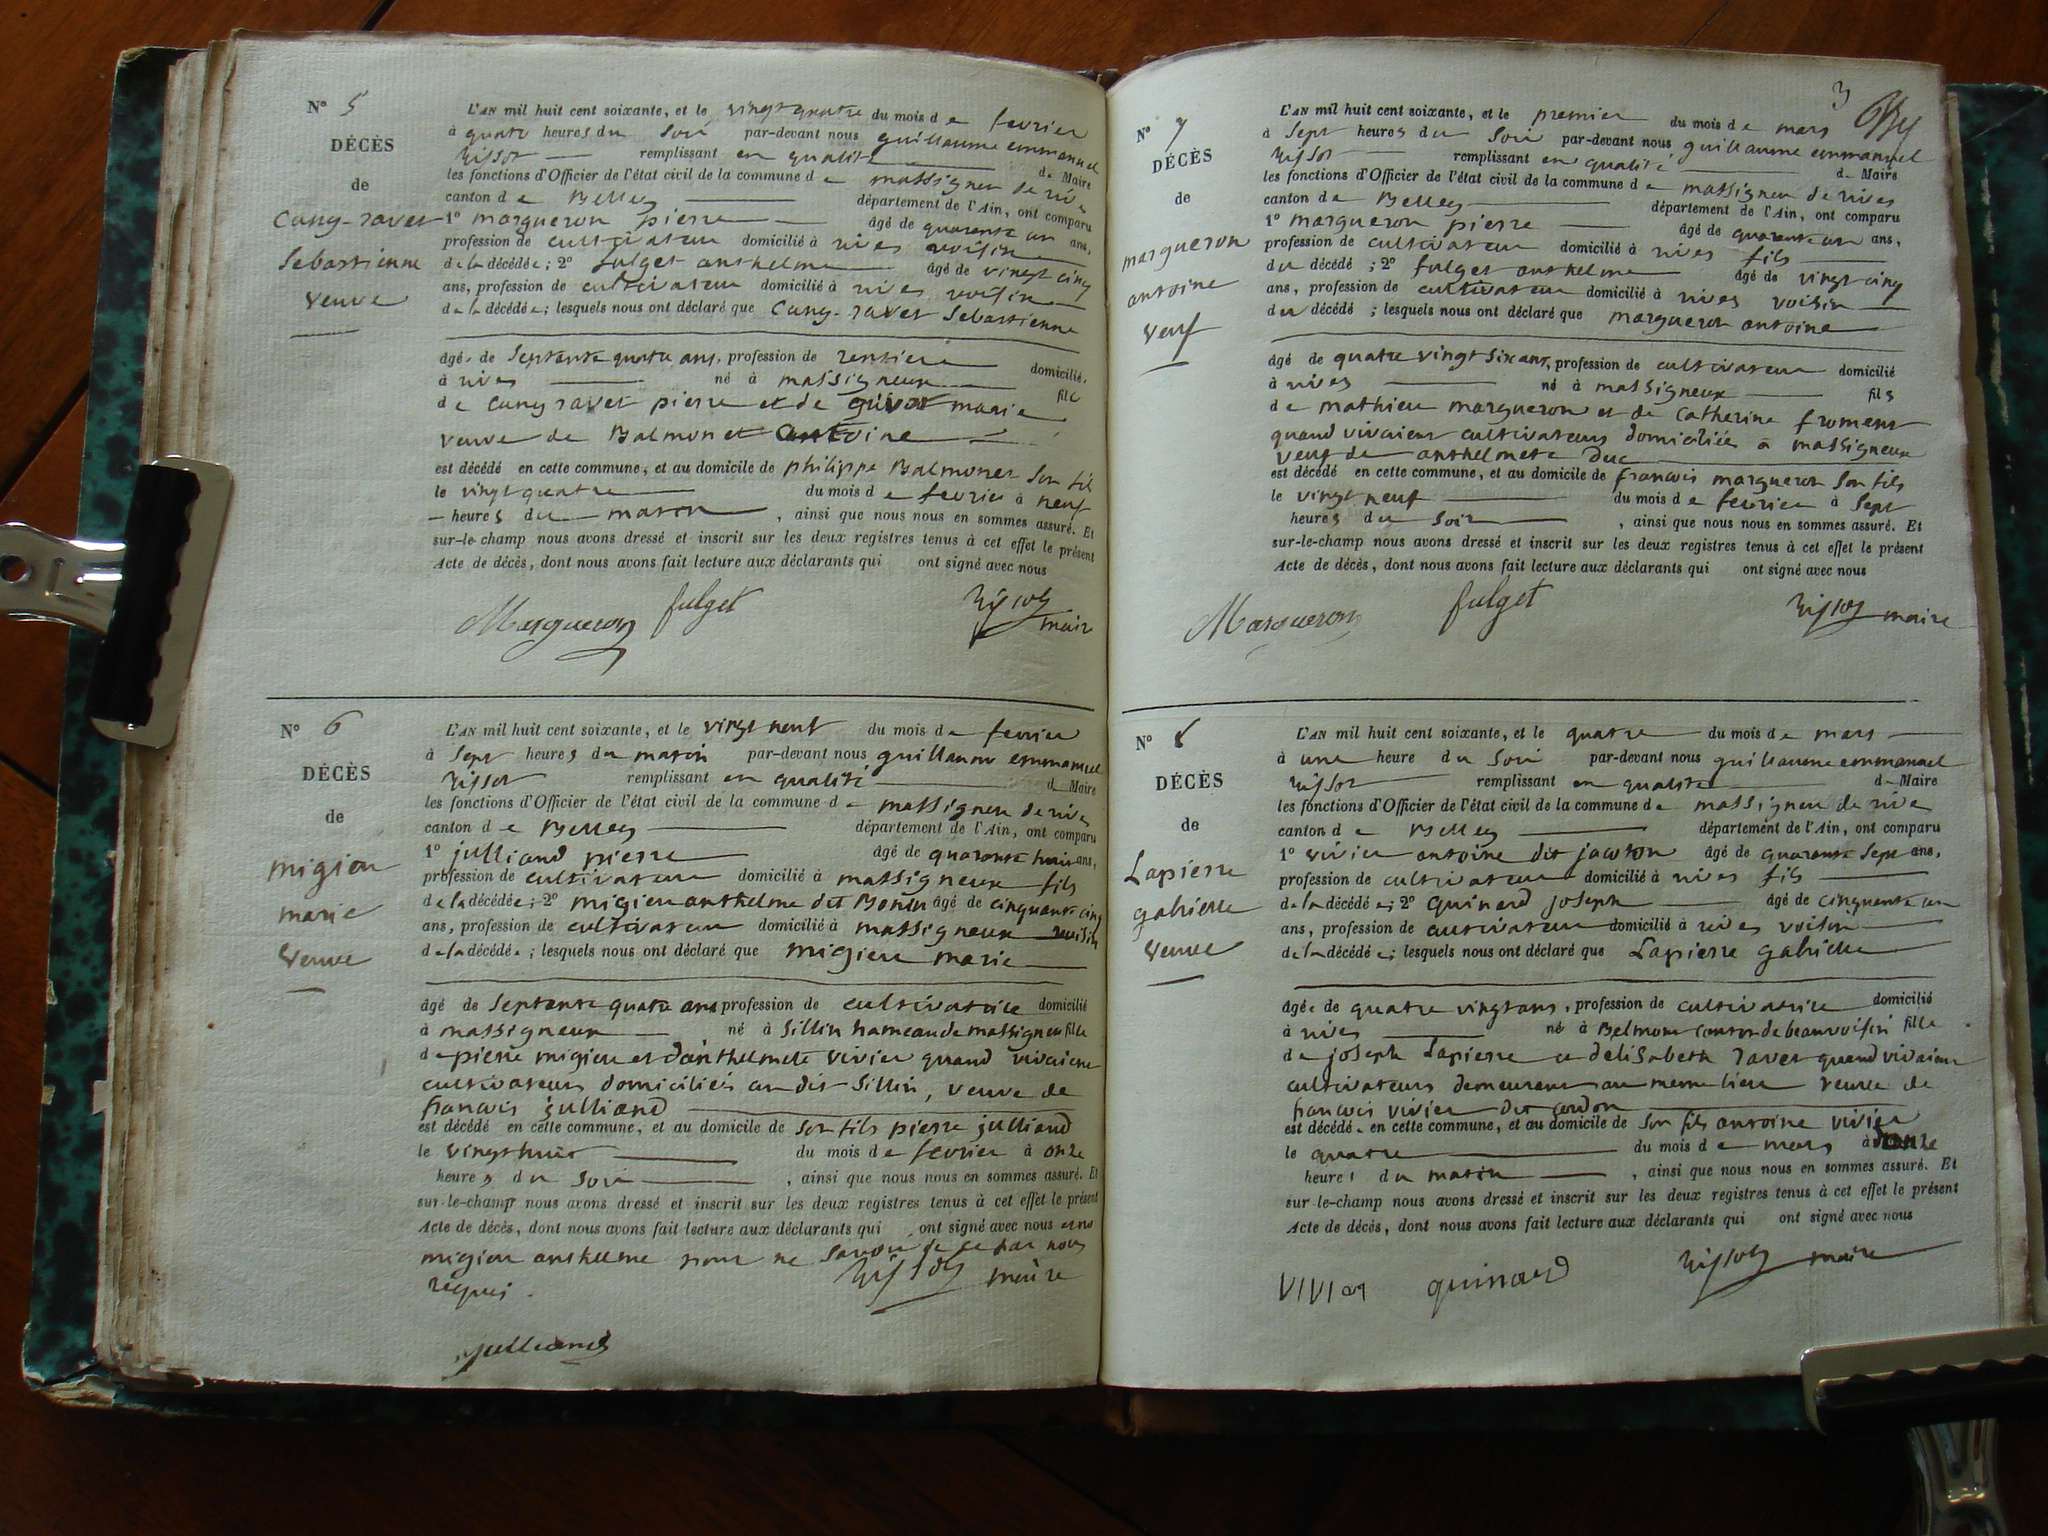 N° 5
DÉCÈS
de
Cuny-ravet
Sebastienne
veuve
L'AN mil huit cent soixante, et le vingt quatre du mois de fevrier
à quatre heures du soir par-devant nous guillaume emmanuel
Rissot remplissant en qualité de Maire
les fonctions d'Officier de l'état civil de la commune de massigneu de rives
canton de Belley département de l'Ain, ont comparu
1° margueron pierre âgé de quarante un ans,
profession de cultivateur domicilié à rives voisin
de la décédée; 2° fulget anthelme âgé de vingt cinq
ans, profession de cultivateur domicilié à rives voisin
de la décédée; lesquels nous ont déclaré que Cuny-ravet Sebastienne
âgée de septante quatre ans, profession de rentiere domicilié.
à rives né à massigneux fille
de Cuny ravet pierre et de guivot marie
veuve de Balmonet antoine
est décédé en cette commune, et au domicile de philippe Balmonet son fils
le vingt quatre du mois de fevrier à neuf
heures du matin, ainsi que nous nous en sommes assuré. Et
sur-le-champ nous avons dressé et inscrit sur les deux registres tenus à cet effet le présent
Acte de décès, dont nous avons fait lecture aux déclarants qui ont signé avec nous
Margueron fulget Rissot
maire
N° 6
DÉCÈS
de
migieu
marie
veuve
L'AN mil huit cent soixante, et le vingt neuf du mois de fevrier
à sept heures du matin par-devant nous guillaume emmanuel
Rissot remplissant en qualité de Maire
les fonctions d'Officier de l'état civil de la commune de massigneu de rives
canton de Belley département de l'Ain, ont comparu
1° julliand pierre âgé de quarante huit ans,
profession de cultivateur domicilié à massigneux fils
de la décédée; 2° migieu anthelme dit Bonin âgé de cinquante cinq
ans, profession de cultivateur domicilié à massigneux voisin
de la décédée; lesquels nous ont déclaré que migieu marie
âgé de septante quatre ans profession de cultivatrice domicilié
à massigneux né à sillin hameau de massigneu fille
de pierre migieu et d'anthelmete vivier quand vivaient
cultivateurs domiciliés au dit sillin, veuve de
francois julliand
est décédé en cette commune, et au domicile de son fils pierre julliand
le vingt huit du mois de fevrier à onze
heures du soir, ainsi que nous nous en sommes assuré. Et
sur-le-champ nous avons dressé et inscrit sur les deux registres tenus à cet effet le présent
Acte de décès, dont nous avons fait lecture aux déclarants qui ont signé avec nous
migieu anthelme pour ne savoir de ce par nous
requis. Rissot maire
julliand
3
N° 7
DÉCÈS
de
margueron
antoine
veuf
L'AN mil huit cent soixante, et le premier du mois de mars
à sept heures du soir par-devant nous guillaume emmanuel
Rissot remplissant en qualité de Maire
les fonctions d'Officier de l'état civil de la commune de massigneu de rives
canton de Belley département de l'Ain, ont comparu
1° margueron pierre âgé de quarante un ans,
profession de cultivateur domicilié à rives fils
du décédé; 2° fulget anthelme âgé de vingt cinq
ans, profession de cultivateur domicilié à rives voisin
du décédé; lesquels nous ont déclaré que margueron antoine
âgé de quatre vingt six ans, profession de cultivateur domicilié
à rives né à massigneux fils
de mathieu margueron et de Catherine froment
quand vivaient cultivateurs domiciliés a massigneux
veuf de anthelmete Duc
est décédé en cette commune, et au domicile de francois margueron son fils
le vingt neuf du mois de fevrier à sept
heures du soir, ainsi que nous nous en sommes assuré. Et
sur-le-champ nous avons dressé et inscrit sur les deux registres tenus à cet effet le présent
Acte de décès, dont nous avons fait lecture aux déclarants qui ont signé avec nous
Margueron fulget Rissot maire
N° 8
DÉCÈS
de
Lapierre
gabrielle
veuve
L'AN mil huit cent soixante, et le quatre du mois de mars
à une heure du soir par-devant nous guillaume emmanuel
Rissot remplissant en qualité de Maire
les fonctions d'Officier de l'état civil de la commune de massigneu de rive
canton de Belley département de l'Ain, ont comparu
1° vivier antoine dit jacoton âgé de quarante sept ans,
profession de cultivateur domicilié à rives fils
de la décédée; 2° quinard joseph âgé de cinquante un
ans, profession de cultivateur domicilié à rives voisin
de la décédée; lesquels nous ont déclaré que Lapierre gabrielle
âgée de quatre vingt ans, profession de cultivatrice domicilié
à rives né à Belmont canton de beauvoisin fille
de joseph Lapierre et d'elisabeth ravet quand vivaient
cultivateurs demeurent au meme lieu veuve de
francois vivier dit cordon
est décédé en cette commune, et au domicile de son fils antoine vivier
le quatre du mois de mars à onze
heures du matin, ainsi que nous nous en sommes assuré. Et
sur-le-champ nous avons dressé et inscrit sur les deux registres tenus à cet effet le présent
Acte de décès, dont nous avons fait lecture aux déclarants qui ont signé avec nous
quinard Rissot maire